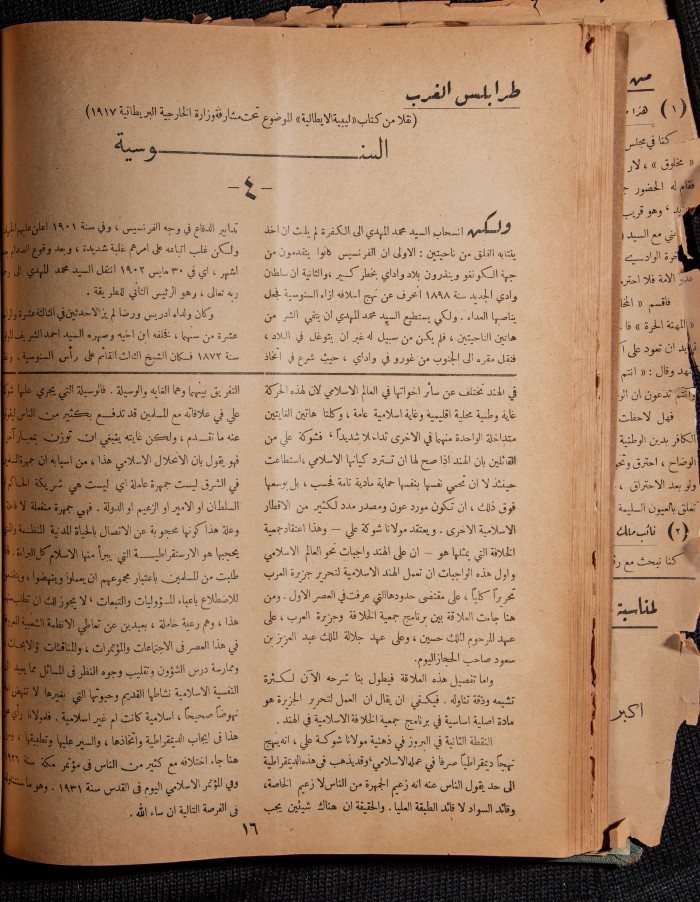 طرابلس الغرب
(نقلا من كتاب «ليبية الايطالية» الموضوع تحت مشارفة وزارة الخارجية البريطانية ١٩١٧)
السنوسية
— ٤ —
ولكن انسحاب السيد محمد المهدي الى الكفرة لم يلبث ان اخذ
ينتابه القلق من ناحيتين : الاولى ان الفرنسيس كانوا يتقدمون من
جهة الكونغو وينذرون بلاد واداي بخطر كبير ، والثانية ان سلطان
وادي الجديد سنة ١٨٩٨ انحرف عن نهج اسلافه ازاء السنوسية فجعل
يناصبها العداء . ولكي يستطيع السيد محمد المهدي ان يتقي الشر من
هاتين الناحيتين ، فلم يكن من سبيل له غير ان يتوغل في البلاد ،
فنقل مقره الى الجنوب من غورو في واداي ، حيث شرع في اتخاذ
تدابير الدفاع في وجه الفرنسيس ، وفي سنة ١٩٠١ اعلن عليهم
ولكن غلب اتباعه على امرهم غلبة شديدة ، وبعد وقوع الصدام
اشهر ، اي في ٣٠ مايس ١٩٠٢ انتقل السيد محمد المهدي الى
ربه تعالى ، وهو الرئيس الثاني للطريقة .
وكان ولداه ادريس ورضا لم يزالا حدثين في الثالثة عشرة
عشرة من سنهما ، فخلفه ابن اخيه وصهره السيد احمد الشريف
سنة ١٨٧٣ فكان الشيخ الثالث القائم على رأس السنوسية .
في الهند تختلف عن سائر اخواتها في العالم الاسلامي لان لهذه الحركة
غاية وطنية محلية اقليمية وغاية اسلامية عامة ، وكلتا هاتين الغايتين
متداخلة الواحدة منهما في الاخرى تداخلا شديداً ، فشوكة علي من
القائلين بان الهند اذا صح لها ان تسترد كيانها الاسلامي ، استطاعت
حينئذ لا ان تحمي نفسها بنفسها حماية مادية تامة فحسب ، بل بوسعها
فوق ذلك ، ان تكون مورد عون ومصدر مدد لكثير من الاقطار
الاسلامية الاخرى . ويعتقد مولانا شوكة علي — وهذا اعتقاد جمعية
الخلافة التي يمثلها هو — ان على الهند واجبات نحو العالم الاسلامي
واول هذه الواجبات ان تعمل الهند الاسلامية لتحرير جزيرة العرب
تحريراً كلياً ، على مقتضى حدودها التي عرفت في العصر الاول . ومن
هنا جاءت العلاقة بين برنامج جمعية الخلافة وجزيرة العرب ، على
عهد المرحوم الملك حسين ، وعلى عهد جلالة الملك عبد العزيز بن
سعود صاحب الحجاز اليوم .
واما تفصيل هذه العلاقة فيطول بنا شرحه الآن لكثرة
تشعبه ودقة تناوله . فيكفي ان يقال ان العمل لتحرير الجزيرة هو
مادة اصلية اساسية في برنامج جمعية الخلافة الاسلامية في الهند .
النقطة الثانية في البروز في ذهنية مولانا شوكة علي ، انه ينهج
نهجاً ديمقراطياً صرفا في عمله الاسلامي ، وقد يذهب في هذه الديمقراطية
الى حد يقول الناس عنه انه زعيم الجمهرة من الناس لا زعيم الخاصة ،
وقائد السواد لا قائد الطبقة العليا . والحقيقة ان هناك شيئين يجب
التفريق بينهما وهما الغاية والوسيلة . فالوسيلة التي يجري عليها
علي في علاقاته مع المسلمين قد تدفع بكثير من الناس
عنه ما تقدم ، ولكن غايته ينبغي ان توزن بمعيار
فهو يقول بان الانحلال الاسلامي هذا ، من اسبابه ان جمهرة
في الشرق ليست جمهرة عاملة اي ليست هي شريكة
السلطان او الامير او الزعيم او الدولة . فهي جمهرة منفعلة لا فاعلة
وعلة هذا كونها محجوبة عن الاتصال بالحياة المدنية المنظمة
يحجبها هو الارستقراطية التي يبرأ منها الاسلام كل البراءة .
طلبت من المسلمين باعتبار مجموعهم ان يعملوا وينهضوا ،
للاضطلاع باعباء المسؤوليات والتبعات ، لا يجوز لك ان
هذا ، وهم رعية خاملة ، بعيدين عن تعاطي الانظمة الشعبية
في هذا العصر في الاجتماعات والمؤتمرات ، والمناقشات
وممارسة درس الشؤون وتقليب وجوه النظر في المسائل مما يعيد
النفسية الاسلامية نشاطها القديم وحيويتها التي بغيرها لا تنهض
نهوضاً صحيحاً ، اسلامية كانت ام غير اسلامية . فلمولانا رأي
هذا في ايجاب الديمقراطية واتخاذها ، والسير عليها وتطبيقها ،
هنا جاء اختلافه مع كثير من الناس في مؤتمر مكة سنة ١٩٢٦
وفي المؤتمر الاسلامي اليوم في القدس سنة ١٩٣١ . وهو ما
في الفرصة التالية ان شاء الله .
١٦
(١)
كنا في مجلس
« مخلوق » ،
فقام له الحضور
وهو قريب
مع السيد
فاقسم «
« المهنة الحرة »
ان تعود على
وقال : « انتم
تدعون ان
فهل لاحظت
الكافر بدين الوطنية
الوضاح ، احترق
ولو بعد الاحتراق ،
تعلق بالعيون السليمة
(٢) نائب ملك
كنا نبحث مع
لمناسبة
اكبر